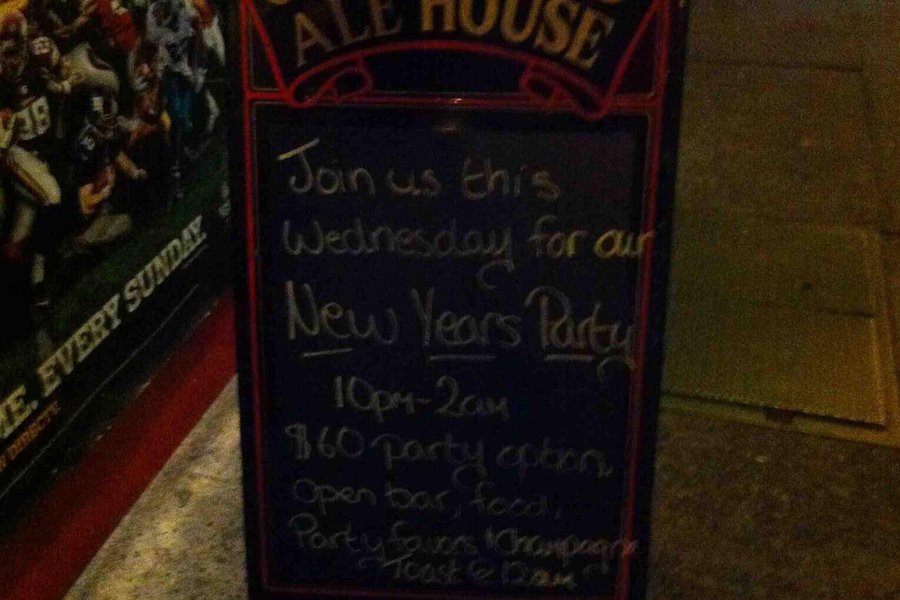 ALE HOUSE
Join us this
Wednesday for our
New Years Party
10pm-2am
$60 party option
open bar, food,
Party favors & Champagne
Toast @ 12am
EVERY SUNDAY.
38